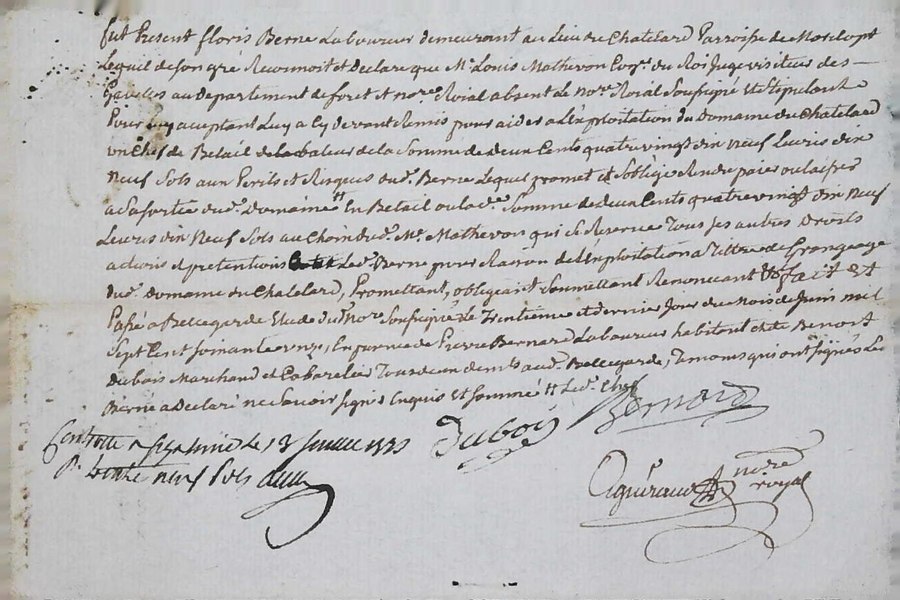 fut Present floris Berne Laboureur demeurant au Lieu du Chatelard Parroisse de
Lequel de son gré Reconnoit et Declare que Mr. Louis Mathevon Con.er du Roi Juge visiteur des
Gabelles au Departement de foret et No.re Roial absent le No.re Roial Soussigné et stipulant
Pour luy aceptant Luy a Cy devant Remis pour aider a L'Exploitation du Domaine du Chatelard
un Chef de Betail de la valeur de la Somme de deux Cents quatre vingt dix neuf Livres dix
neuf Sols aux Perils et Risques dud. Berne Lequel promet et s'oblige Rendre paier ou laisser
a Sa sortie dud. Domaine En Betail ou lad.e Somme de deux Cents quatre vingt dix Neuf
Livres dix Neuf Sols au Choix dud. Mr. Mathevon qui Se Reserve Tous ses autres Droits
actions & pretentions Led. Berne pour Raison de L'Exploitation a Tittre de Grangeage
dud. Domaine du Chatelard, Promettant, obligeant Soumettant Renonceant & fait et
Passé a Bellegarde Etude dud. No.re Soussigné Le Trentieme et dernier Jour du Mois de Juin mil
Sept Cent soixante onze, En presence de Pierre Bernard Laboureur habitant et de Benoit
Dubois Marchand et Cabaretier Tous deux dem.ts aud. Bellegarde, Temoins qui ont signés Led.
Berne a Declaré ne Savoir signer Enquis et Sommé Led.
Dubois Bernard
Controllé a le 13 Juillet 1771
R. treize neuf Sols
nore
royal